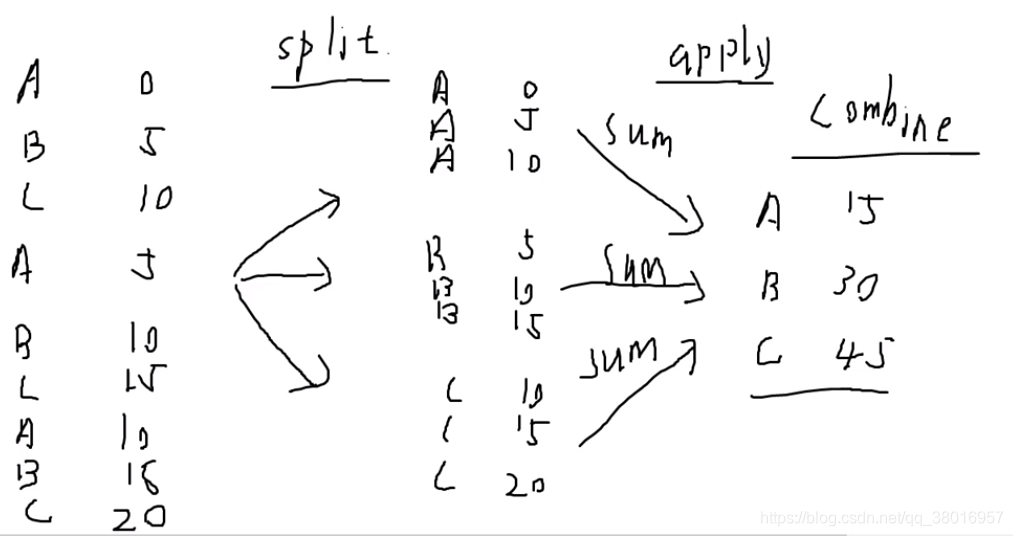 split
apply
combine
A 0
B 5
C 10
A 5
B 10
C 15
A 10
B 15
C 20
A 0
A 5
A 10
B 5
B 10
B 15
C 10
C 15
C 20
sum
sum
sum
A 15
B 30
C 45
https://blog.csdn.net/qq_38016957